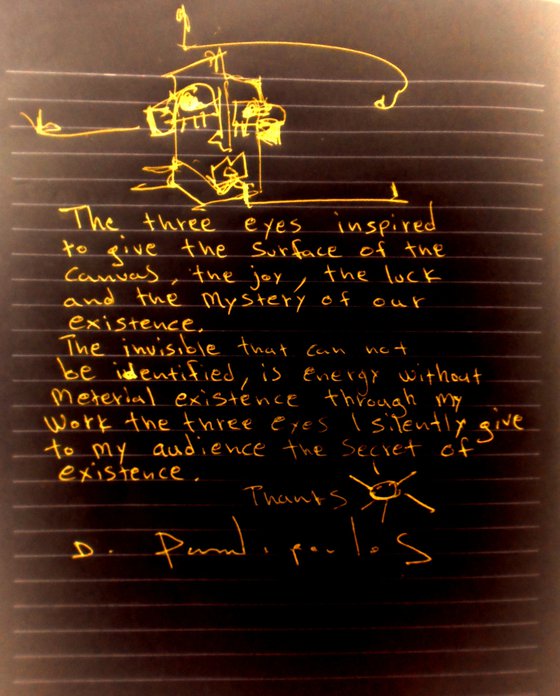 The three eyes inspired
to give the surface of the
canvas, the joy, the luck
and the mystery of our
existence.
The invisible that can not
be identified, is energy without
meterial existence through my
work the three eyes I silently give
to my audience the secret of
existence.
Thanks
D.